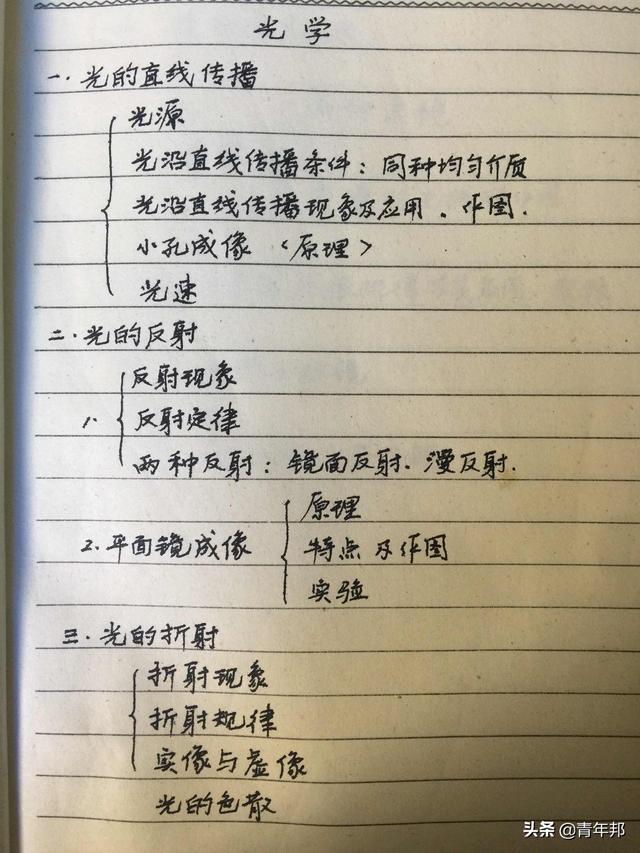 光学
一.光的直线传播
光源
光沿直线传播条件：同种均匀介质
光沿直线传播现象及应用、作图.
小孔成像〈原理〉
光速
二.光的反射
反射现象
1. 反射定律
两种反射：镜面反射、漫反射.
原理
2.平面镜成像 特点及作图
实验
三.光的折射
折射现象
折射规律
实像与虚像
光的色散
头条 @青年邦